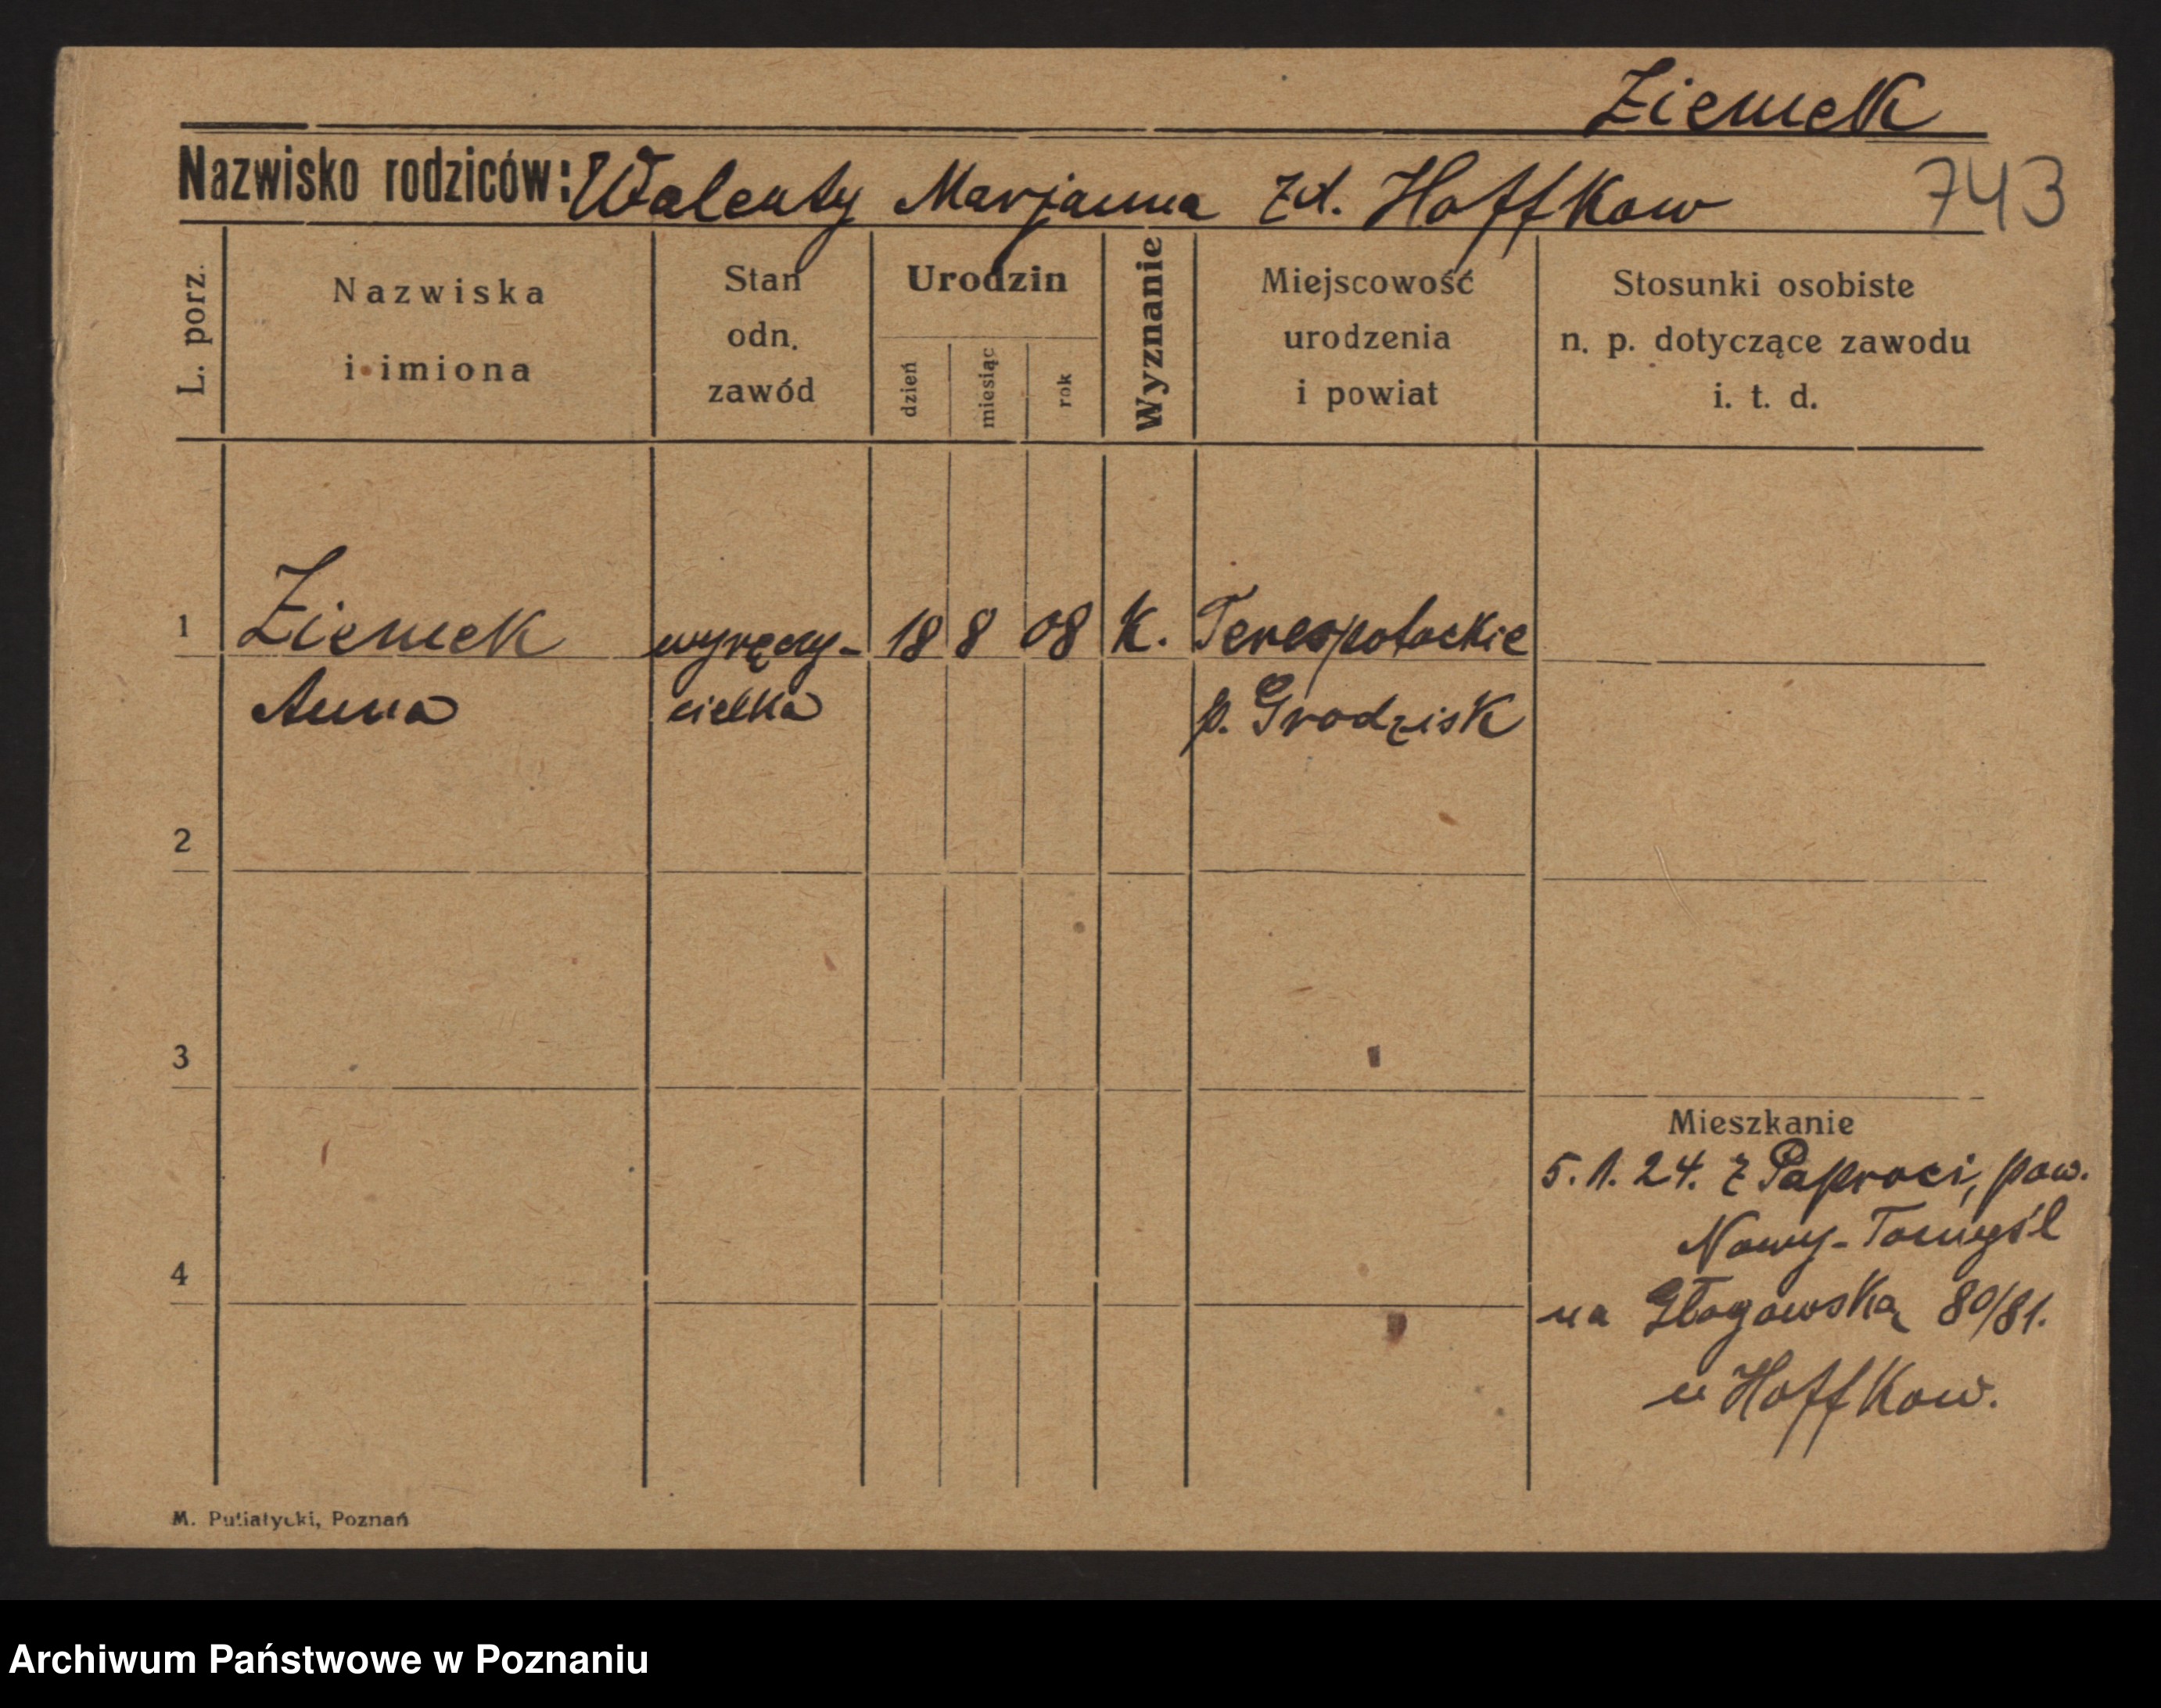 Ziemek
Nazwisko rodziców: Walenty Marjanna zd. Hoffkow
743
L. porz.
Nazwiska
i imiona
Stan
odn.
zawód
Urodzin
dzień
miesiąc
rok
Wyznanie
Miejscowość
urodzenia
i powiat
Stosunki osobiste
n. p. dotyczące zawodu
i. t. d.
1 Ziemek wyręczy- 18 8 08 K. Terespotockie
Anna cielka p. Grodzisk
2
3
Mieszkanie
5.1.24. z Paproci, pow.
Nowy-Tomyśl
4
na Głogowską 80/81.
u Hoffkow.
M. Putiatycki, Poznań
Archiwum Państwowe w Poznaniu